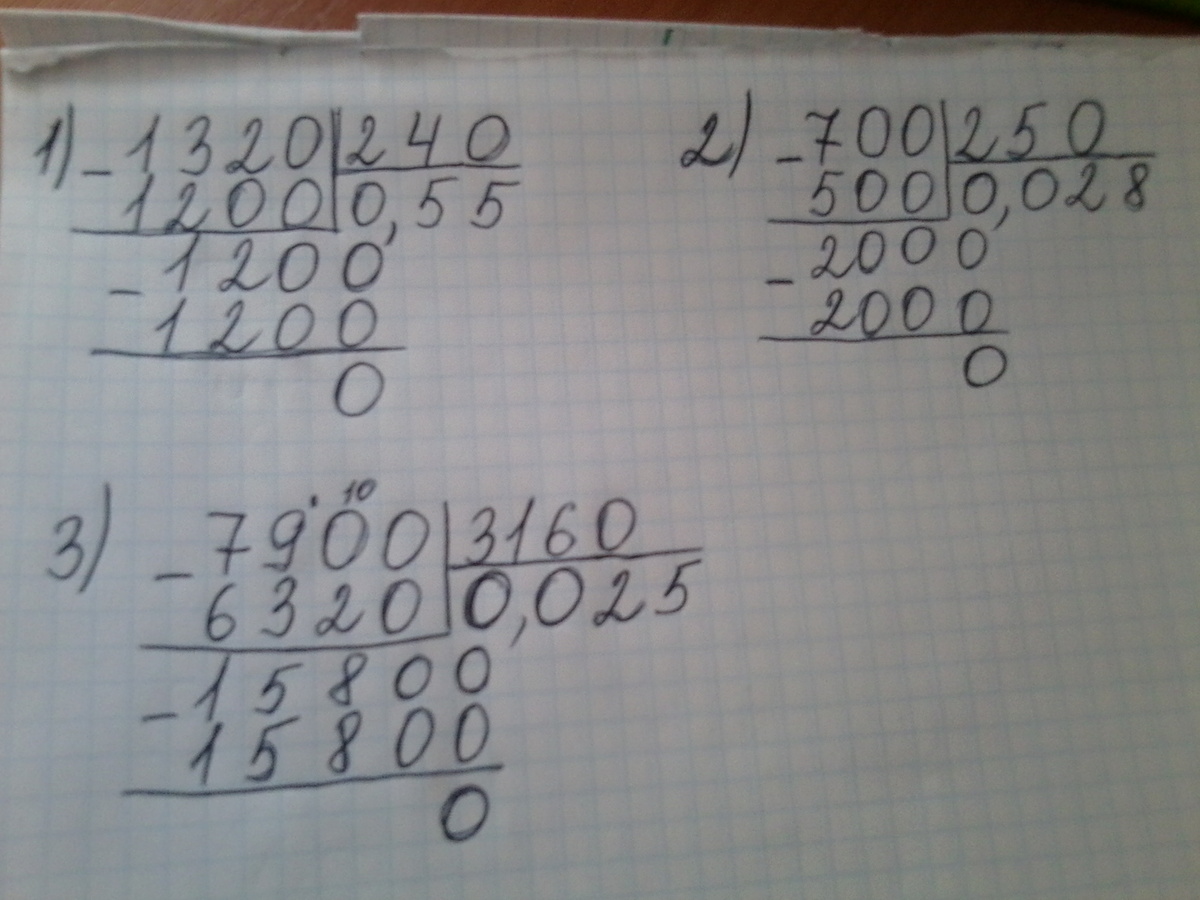 1) - 1320 | 240
1200 | 0,55
- 1200
1200
0
2) - 700 | 250
500 | 0,028
- 2000
2000
0
10
3) - 7900 | 3160
6320 | 0,025
- 15800
15800
0